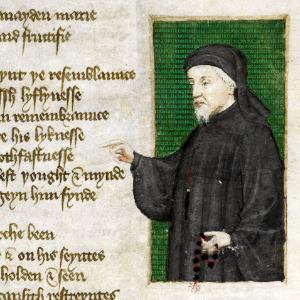 mayden marie
fructifie
ye resemblaunce
lyflynesse
remembraunce
his lyknesse
sothfastnesse
left yought & mynde
ageyn him fynde
been
& on his seyntes
holden & seen
restreyntes